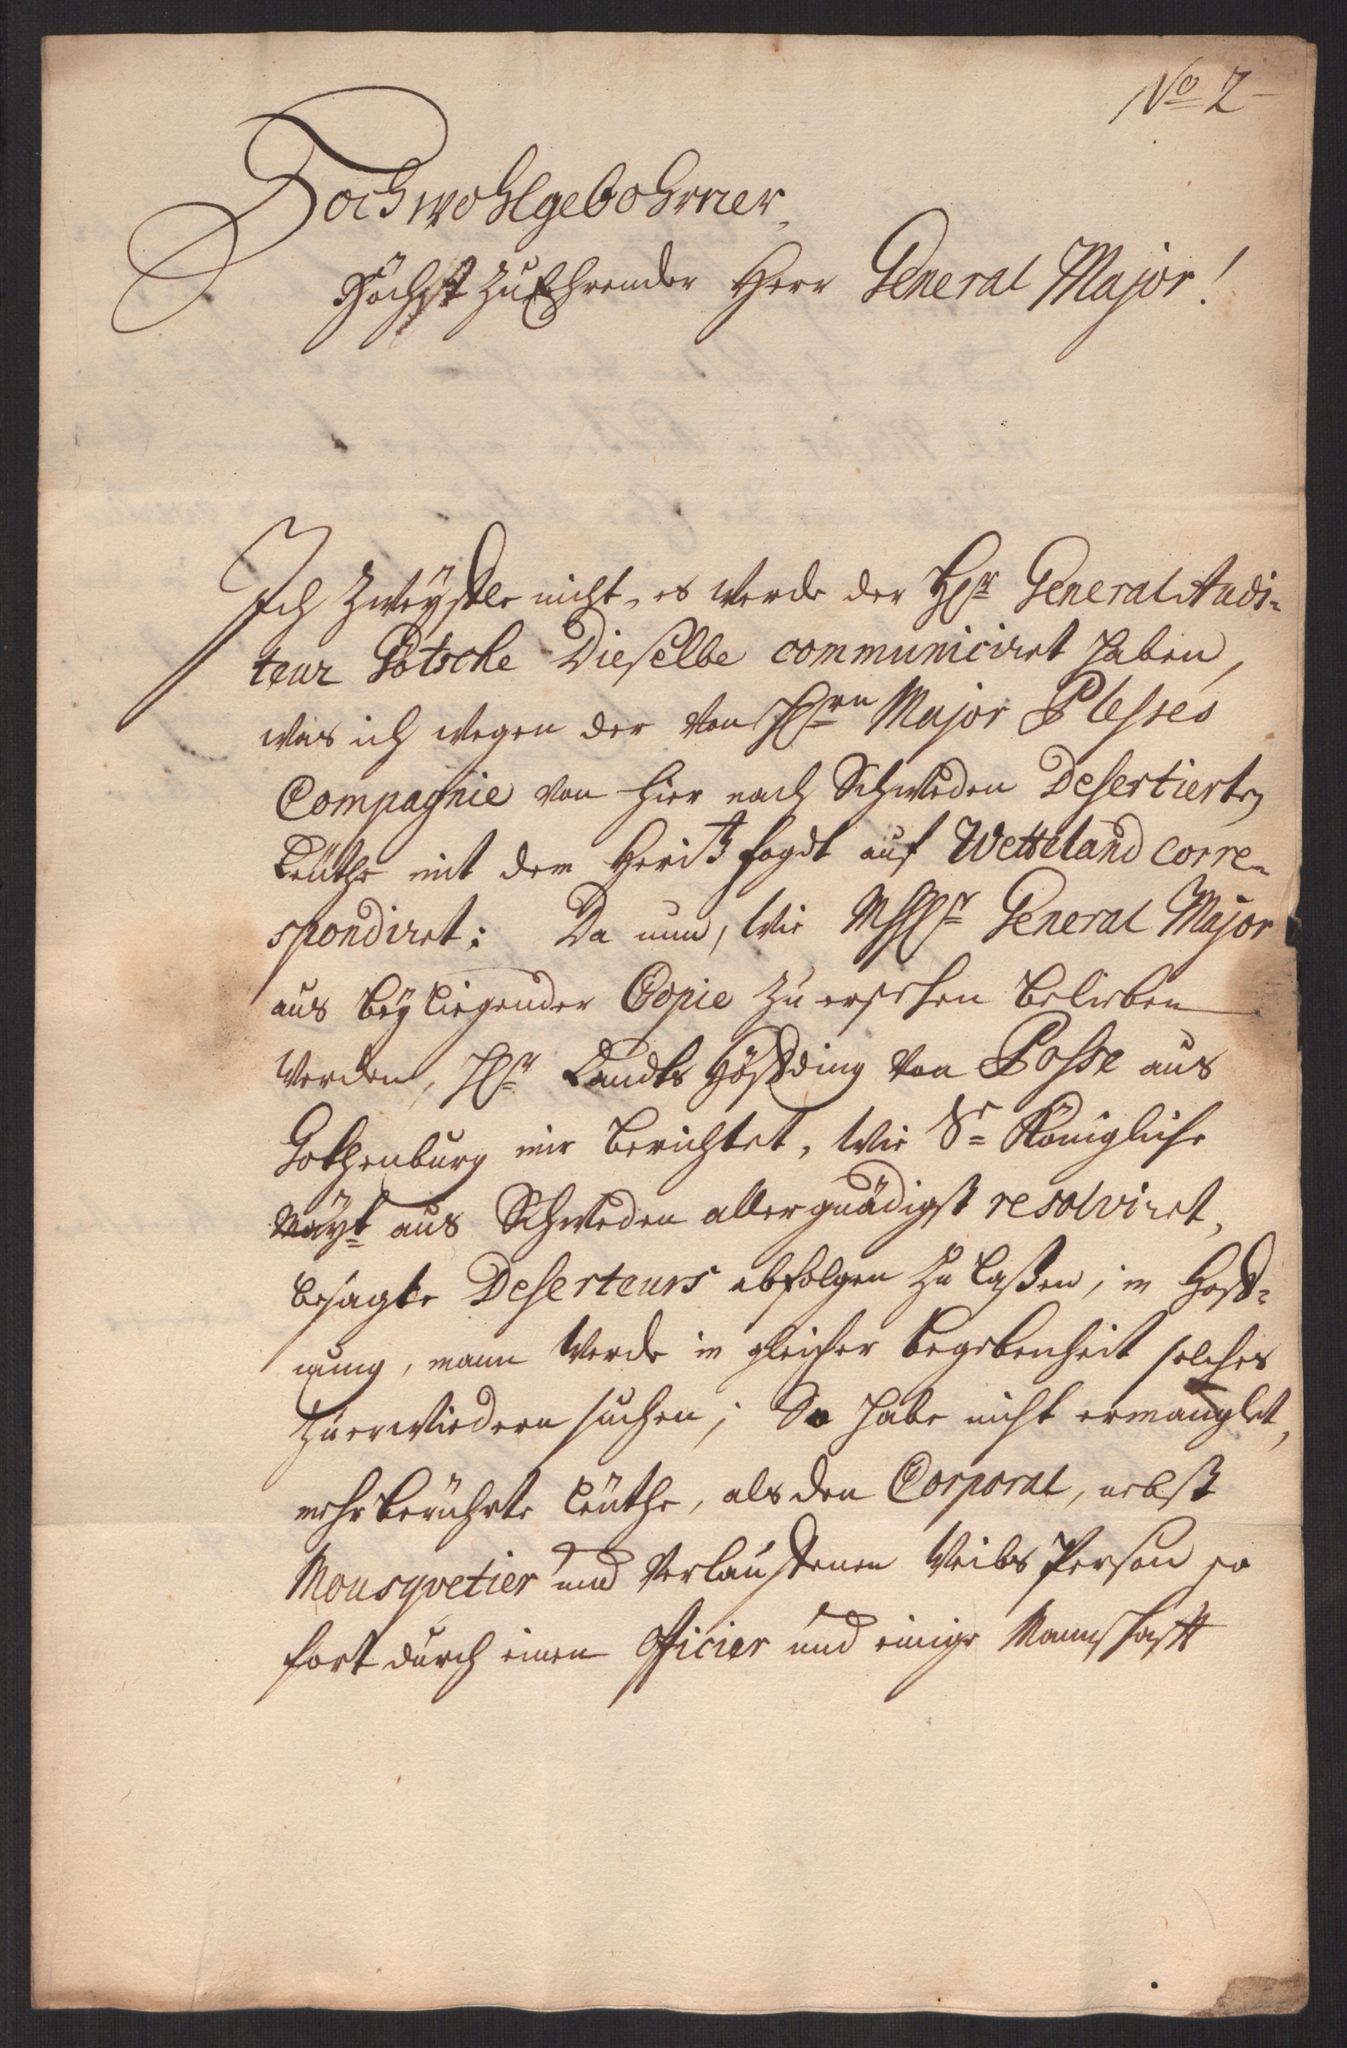 No 2
Hochwohlgebohrner,
Höchst zu Ehrender Herr General Major!
Ich zweyffle nicht, es werde der HEr General Audi-
teur Pötsche Dieselbe communiciret haben,
was ich wegen der von HErn Major Plesses
Compagnie von hier nach Schweden Desertierten
Leüthe mit dem Heritz fogdt auf Wetteland corre-
spondiret: Da nun, wie General Major
aus beÿliegender Copie zu ersehen belieben
werden, HEr Landts Höffding von Posse aus
Gothenburg mir berichtet, wie Sr Königliche
Maÿt aus Schweden allergnädigst resolviret,
besagte Deserteurs abfolgen zu laßen, in Hoff-
nung, mann werde in gleicher begebenheit solches
zu erwiedern suchen; So habe nicht ermanglet,
mehr berührte Leüthe, als den Corporal, nebst
Mousqvetier und verlauffenen Weibs Person so
fort durch einen Officier und einige Mannschafft